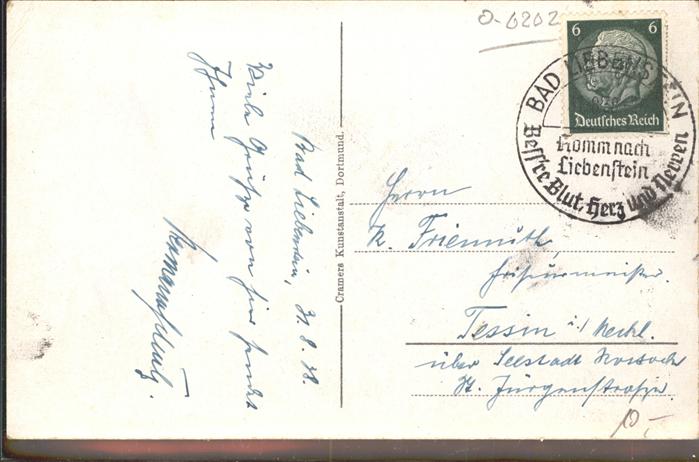 O-6202
6 6
Deutsches Reich
BAD LIEBENSTEIN
Komm nach
Liebenstein
Bess're Blut, Herz und Nerven
Bad Liebenstein, 31. 8. 38.
Viele Grüße von hier sendet
Ihnen
Cramers Kunstanstalt, Dortmund.
Herrn
K. Friemuth,
Frisürmeister.
Tessin i./ Meckl.
über Seestadt Rostock
St. Jürgenstraße
10,-